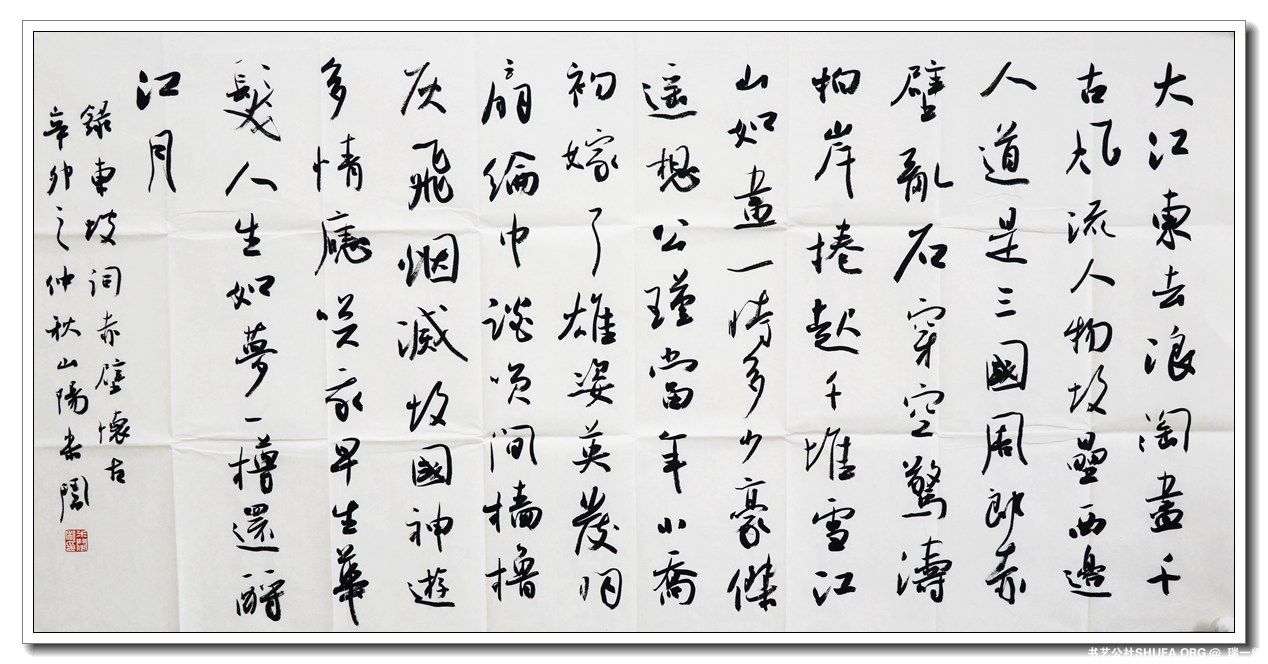 大江東去浪淘盡千
古風流人物故壘西邊
人道是三國周郎赤
壁亂石穿空驚濤
拍岸捲起千堆雪江
山如畫一時多少豪傑
遥想公瑾當年小喬
初嫁了雄姿英發羽
扇綸巾談笑間檣櫓
灰飛烟滅故國神遊
多情應笑我早生華
髮人生如夢一樽還酹
江月
錄東坡詞赤壁懷古
辛卯之仲秋山陽
书艺公社SHUFA.ORG @ 瑞一